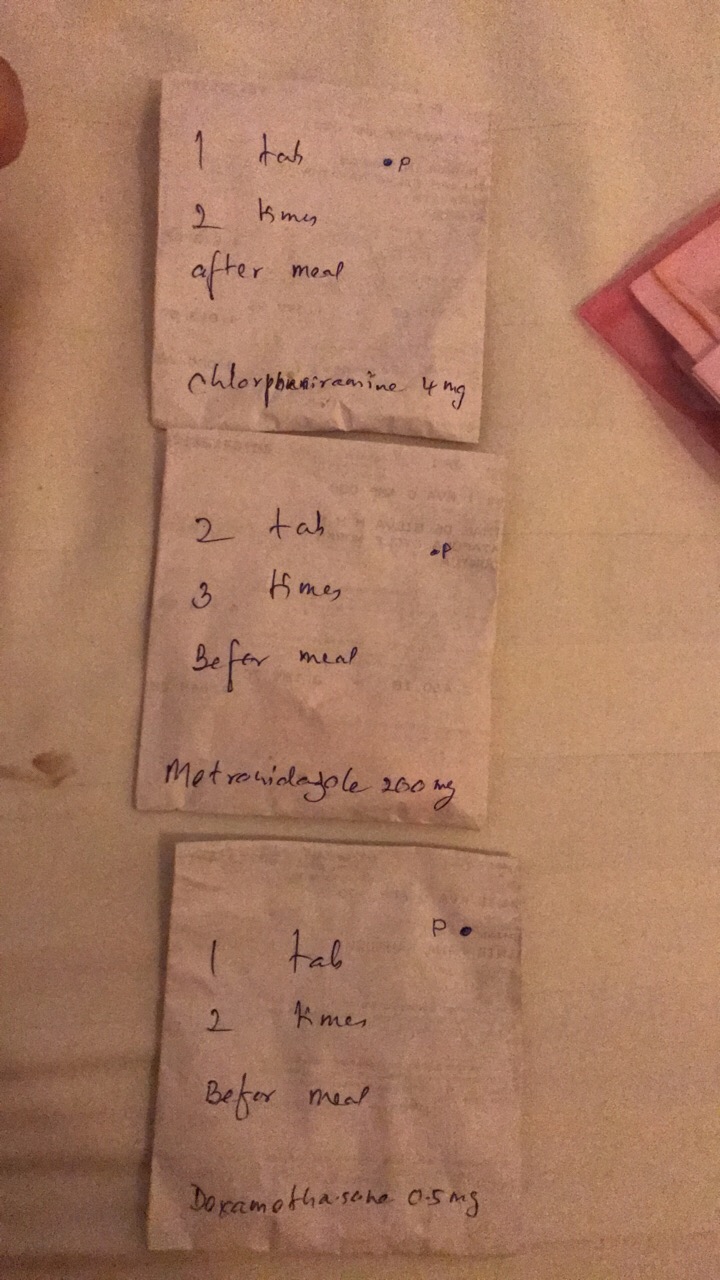 1 tab •P
2 times
after meal
Chlorpheniramine 4 mg
2 tab •P
3 times
Befor meal
Metronidazole 200 mg
1 tab P•
2 times
Befor meal
Doxamethasone 0.5 mg